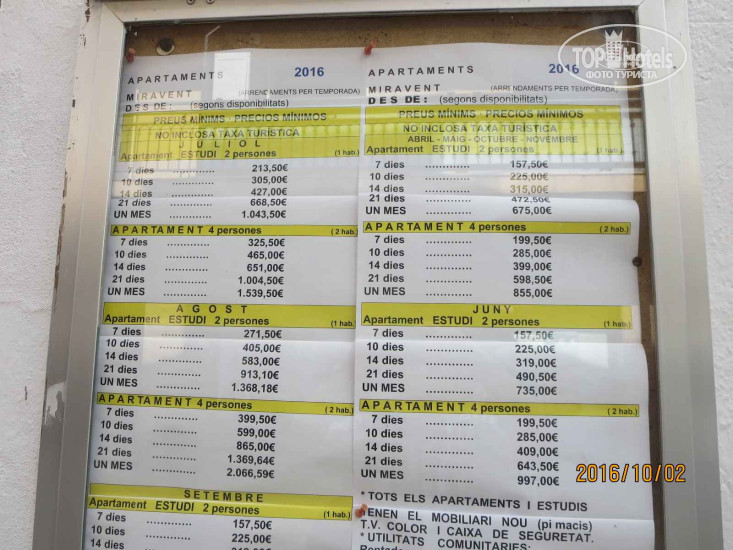 APARTAMENTS 2016
MIRAVENT (ARRENDAMENTS PER TEMPORADA)
DES DE: (segons disponibilitats)
PREUS MÍNIMS - PRECIOS MÍNIMOS
NO INCLOSA TAXA TURÍSTICA
JULIOL
Apartament ESTUDI 2 persones (1 hab.)
7 dies ............. 213,50€
10 dies ............. 305,00€
14 dies ............. 427,00€
21 dies ............. 668,50€
UN MES ............. 1.043,50€
APARTAMENT 4 persones (2 hab.)
7 dies ............. 325,50€
10 dies ............. 465,00€
14 dies ............. 651,00€
21 dies ............. 1.004,50€
UN MES ............. 1.539,50€
AGOST
Apartament ESTUDI 2 persones (1 hab.)
7 dies ............. 271,50€
10 dies ............. 405,00€
14 dies ............. 583,00€
21 dies ............. 913,10€
UN MES ............. 1.368,18€
APARTAMENT 4 persones (2 hab.)
7 dies ............. 399,50€
10 dies ............. 599,00€
14 dies ............. 865,00€
21 dies ............. 1.369,64€
UN MES ............. 2.066,59€
SETEMBRE
Apartament ESTUDI 2 persones (1 hab.)
7 dies ............. 157,50€
10 dies ............. 225,00€
APARTAMENTS 2016
MIRAVENT (ARRENDAMENTS PER TEMPORADA)
DES DE: (segons disponibilitats)
PREUS MÍNIMS - PRECIOS MÍNIMOS
NO INCLOSA TAXA TURÍSTICA
ABRIL - MAIG - OCTUBRE - NOVEMBRE
Apartament ESTUDI 2 persones (1 hab.)
7 dies ............. 157,50€
10 dies ............. 225,00€
14 dies ............. 315,00€
21 dies ............. 472,50€
UN MES ............. 675,00€
APARTAMENT 4 persones (2 hab.)
7 dies ............. 199,50€
10 dies ............. 285,00€
14 dies ............. 399,00€
21 dies ............. 598,50€
UN MES ............. 855,00€
JUNY
Apartament ESTUDI 2 persones (1 hab.)
7 dies ............. 157,50€
10 dies ............. 225,00€
14 dies ............. 319,00€
21 dies ............. 490,50€
UN MES ............. 735,00€
APARTAMENT 4 persones (2 hab.)
7 dies ............. 199,50€
10 dies ............. 285,00€
14 dies ............. 409,00€
21 dies ............. 643,50€
UN MES ............. 997,00€
* TOTS ELS APARTAMENTS I ESTUDIS
TENEN EL MOBILIARI NOU (pi macis)
T.V. COLOR I CAIXA DE SEGURETAT.
* UTILITATS COMUNITARIES:
TOP Hotels
ФОТО ТУРИСТА
2016/10/02